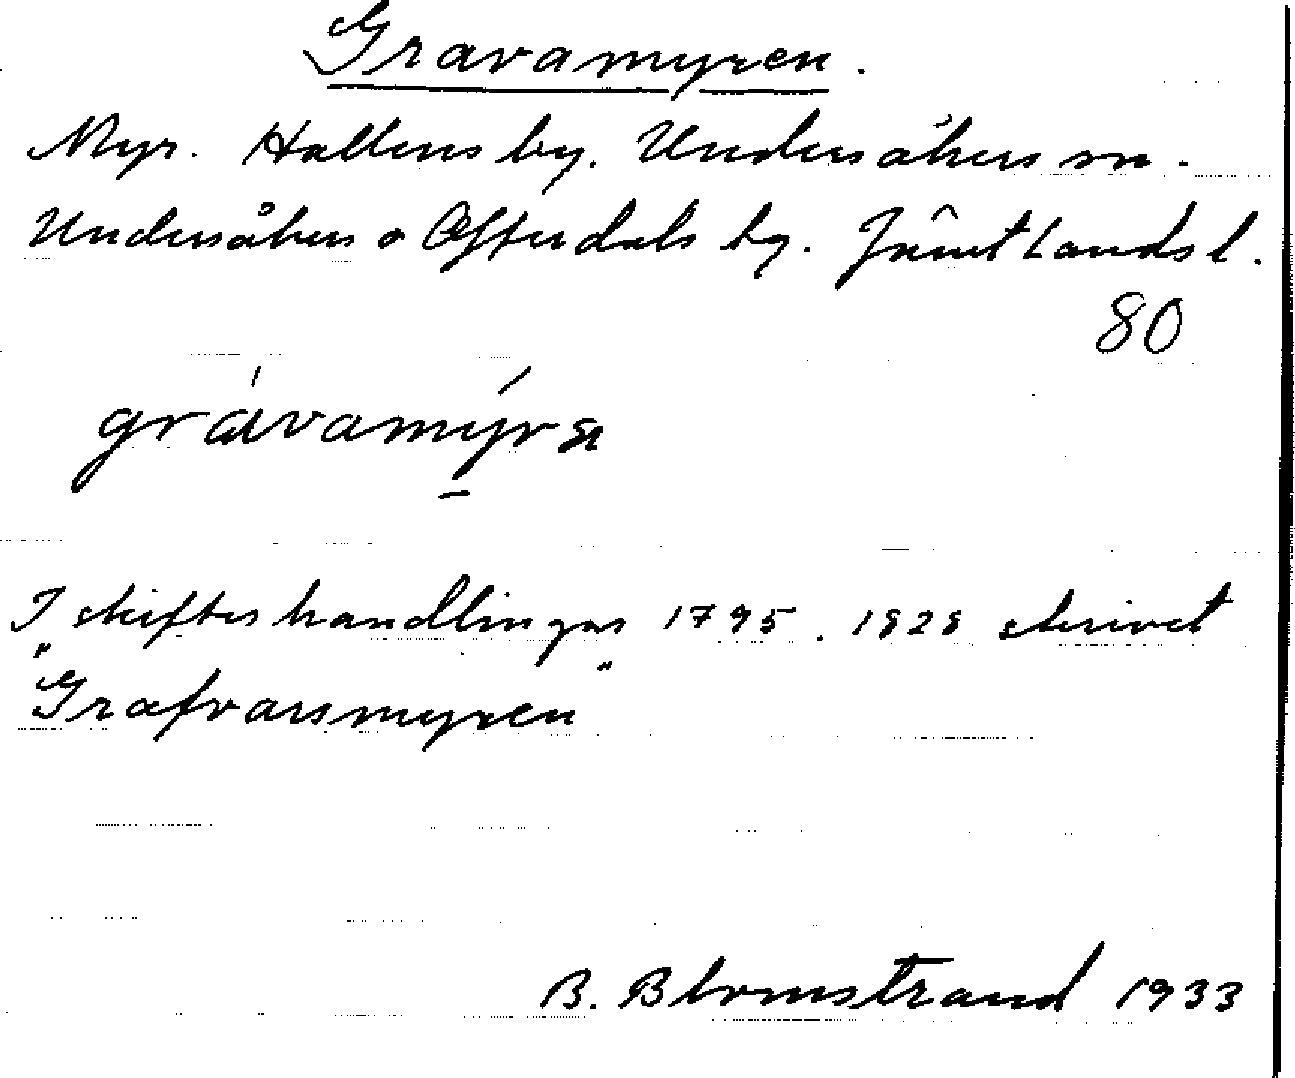 Gravamyren.
Myr. Hallens by. Undersåkers sn.
Undersåkers o Offerdals tg. Jämtlands l.
80
I skifteshandlingar 1795. 1828 skrivet
"Grafvarsmyren"
B. Blomstrand 1933